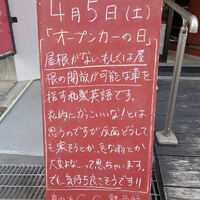 4月5日(土)
「オープンカーの日」
屋根がないもしくは屋
根の開放が可能な車を
指す和製英語です。
私的にかっこいいな!とは
思うのですが反面どうして
も寒そうとか、危なそうとか
大丈夫な…って思っちゃいます。
でも、気持ち良さそうです!!